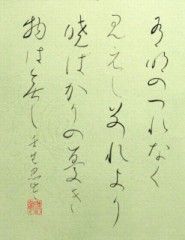 有明のつれなく
見えし別れより
暁はかりの憂き
物は無し